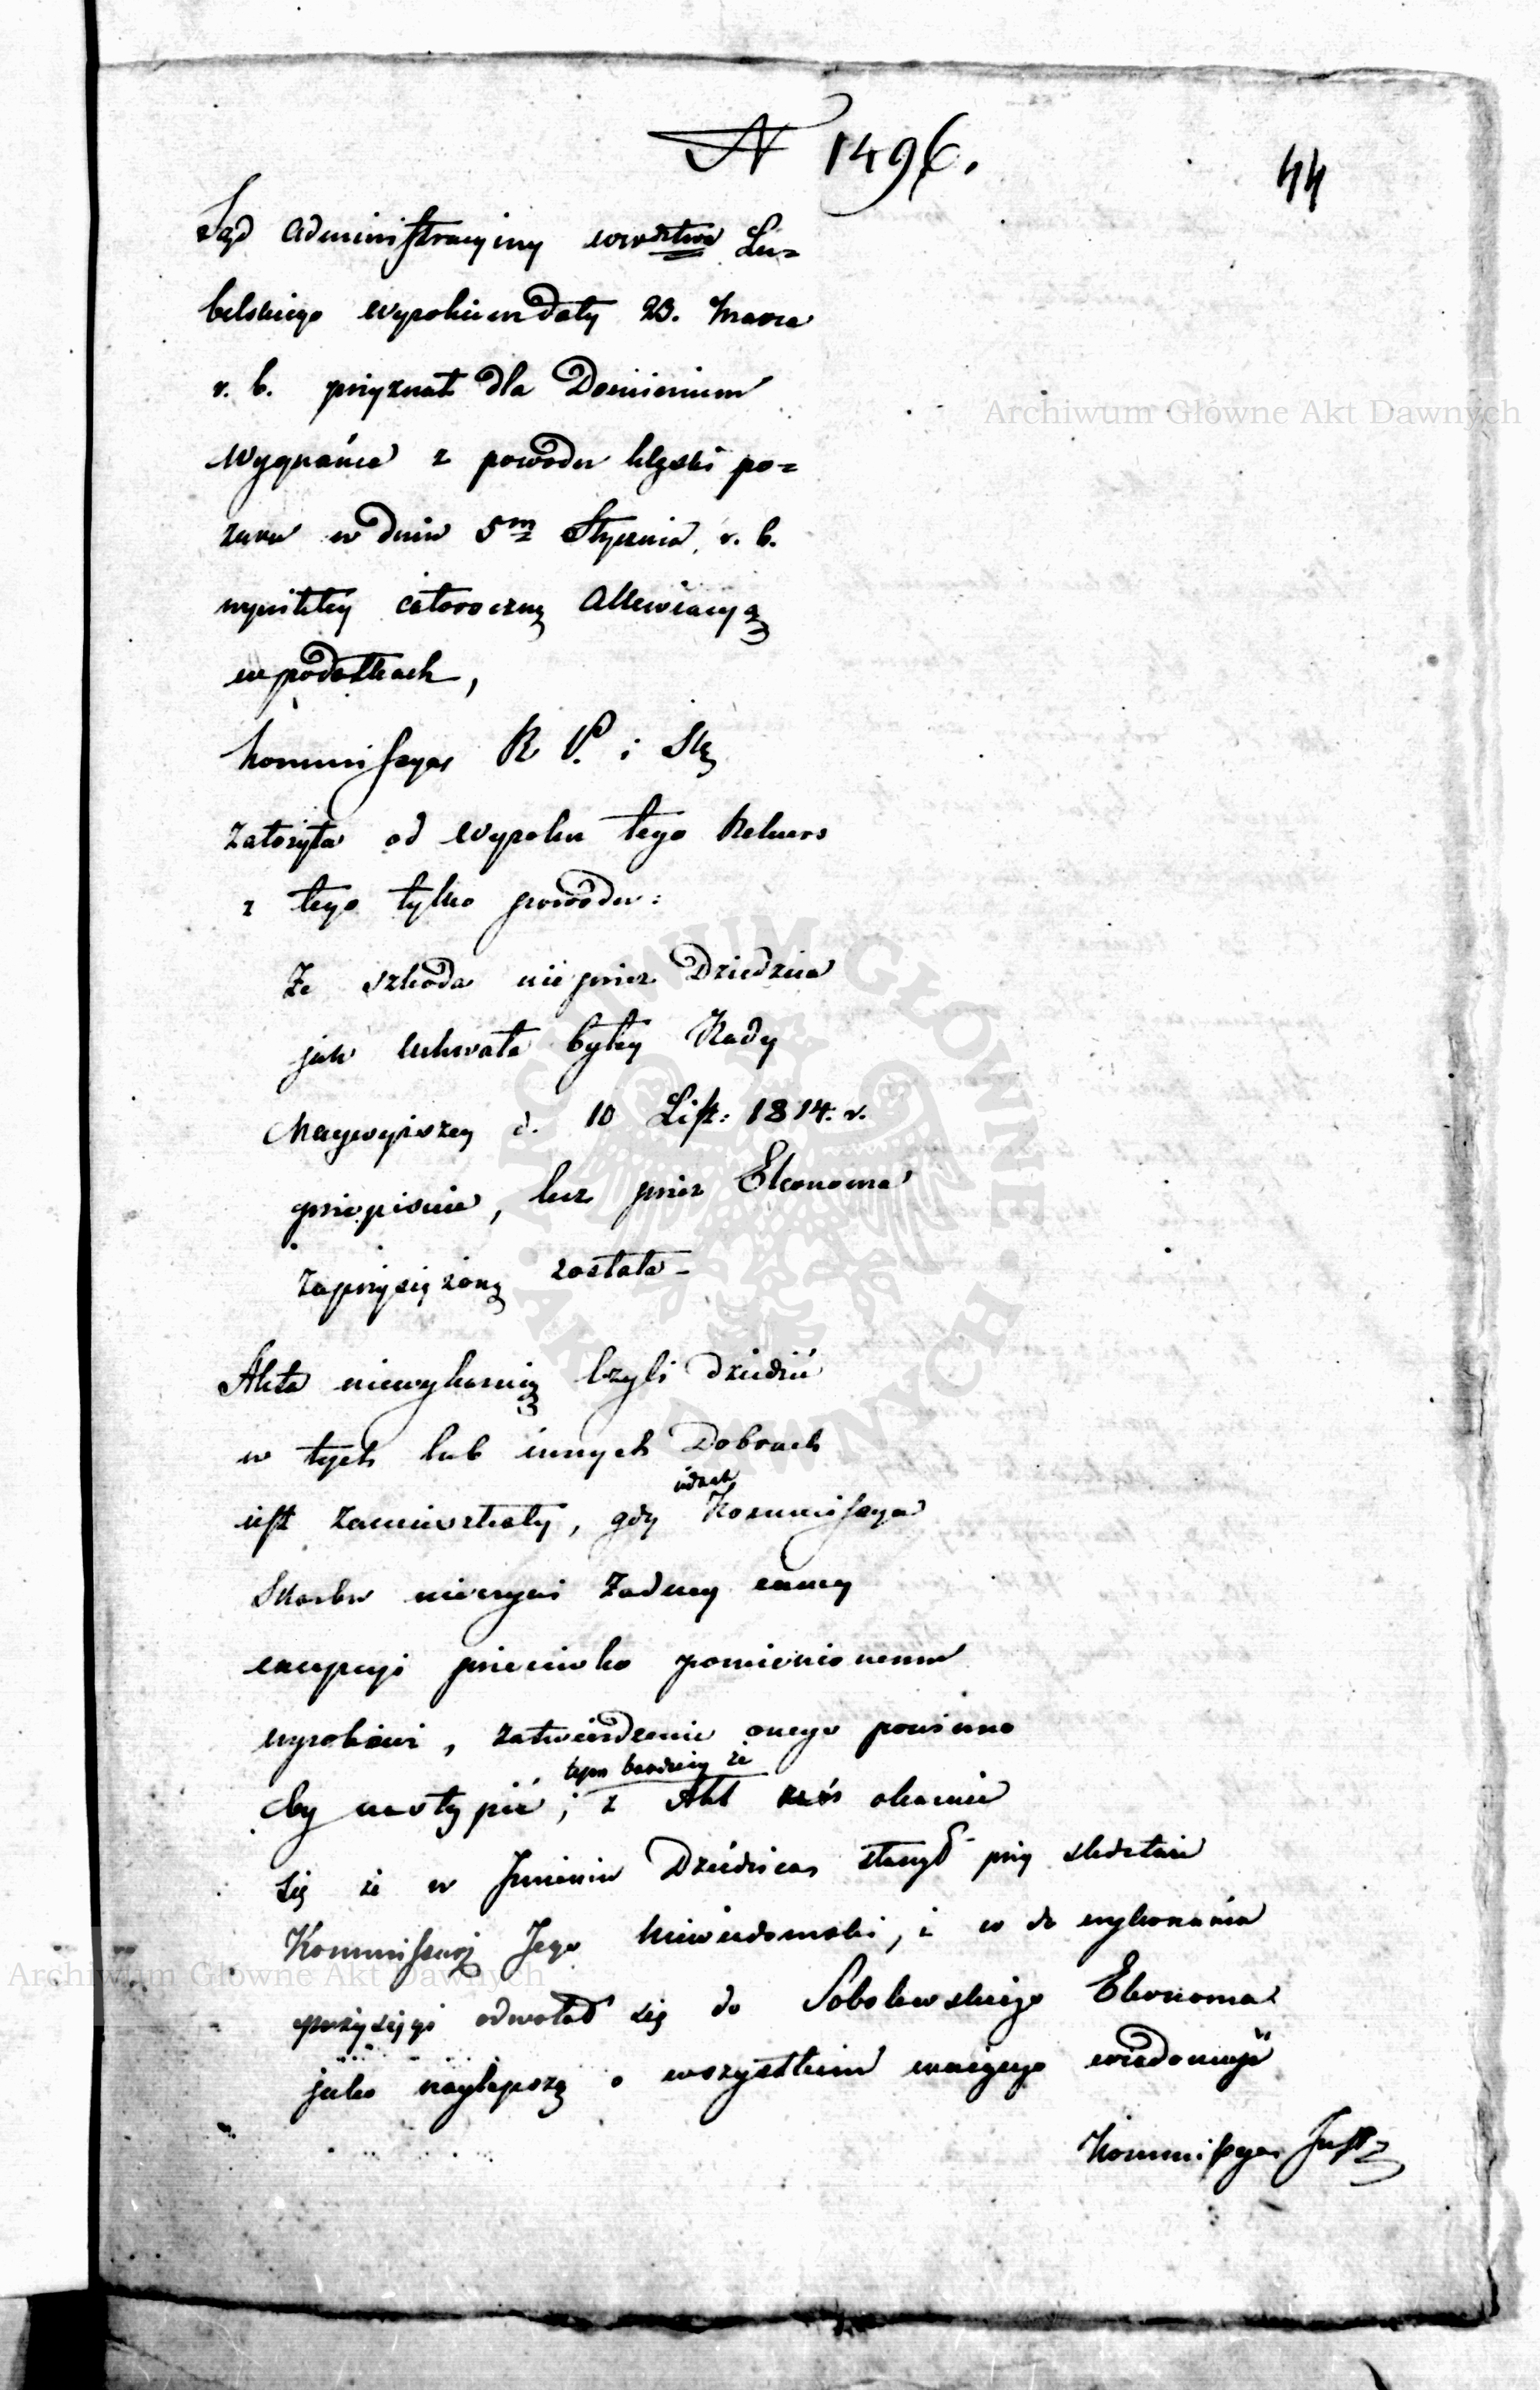 N 1496.
44
Sąd Administracyiny wwdztwa Lu=
belskiego wyrokiem daty 23. Marca
r. b. przyznał dla Dominium
Wygnańce z powodu klęski po=
żaru w dniu 5m Stycznia r. b.
wynikłey całoroczną Allewiacyą
w podatkach,
Kommissya R P. i Sk
założyła od wyroku tego Rekurs
z tego tylko powodu:
Że szkoda nie przez Dziedzica
jak uchwała byłey Rady
Naywyższey d. 10 List: 1814. r.
przepisuie, lecz przez Ekonoma
zaprzysiężoną została -
Akta niewykazuią czyli dziedzic
w tych lub innych Dobrach
iest zamieszkały, gdy
iednak
Kommissya
Skarbu nieczyni żadney inney
excepcyi przeciwko pomienionemu
wyrokowi, zatwierdzenie onego powinno
by nastąpić;
tym bardziey że
z Akt okazuie
się że w Imieniu Dziedzica stanął przy śledztwie
Kommissarz Jego Niewiadomski, i w do wykonania
przysięgi odwołał się do Sobolewskiego Ekonoma
jako naylepszą o wszystkiem maiącego wiadomość
Kommissya Just
Archiwum Główne Akt Dawnych
ARCHIWUM GŁÓWNE AKT DAWNYCH
Archiwum Główne Akt Dawnych